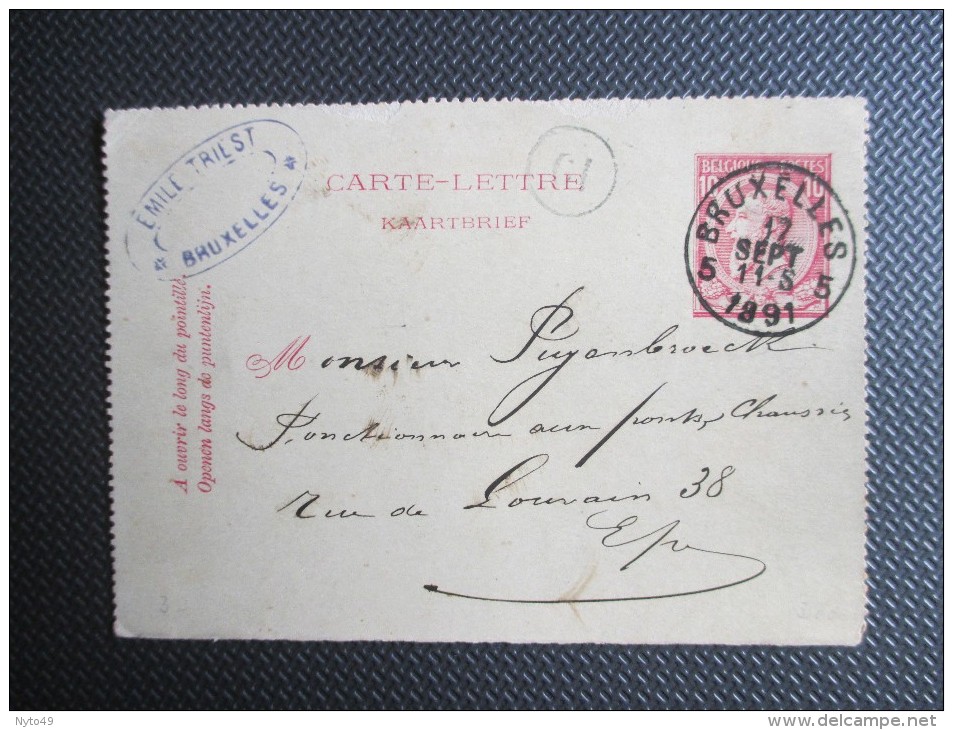 EMILE TRILST
BRUXELLES
CARTE-LETTRE
KAARTBRIEF
15
BELGIQUE POSTES
10 10
BRUXELLES
17
SEPT
11-S
5 5
1891
À ouvrir le long du pointillé.
Openen langs de puntenlijn.
Monsieur Puyenbroeck
Fonctionnaire aux ponts, Chaussées
rue de Louvain 38
Nyto49
www.delcampe.net